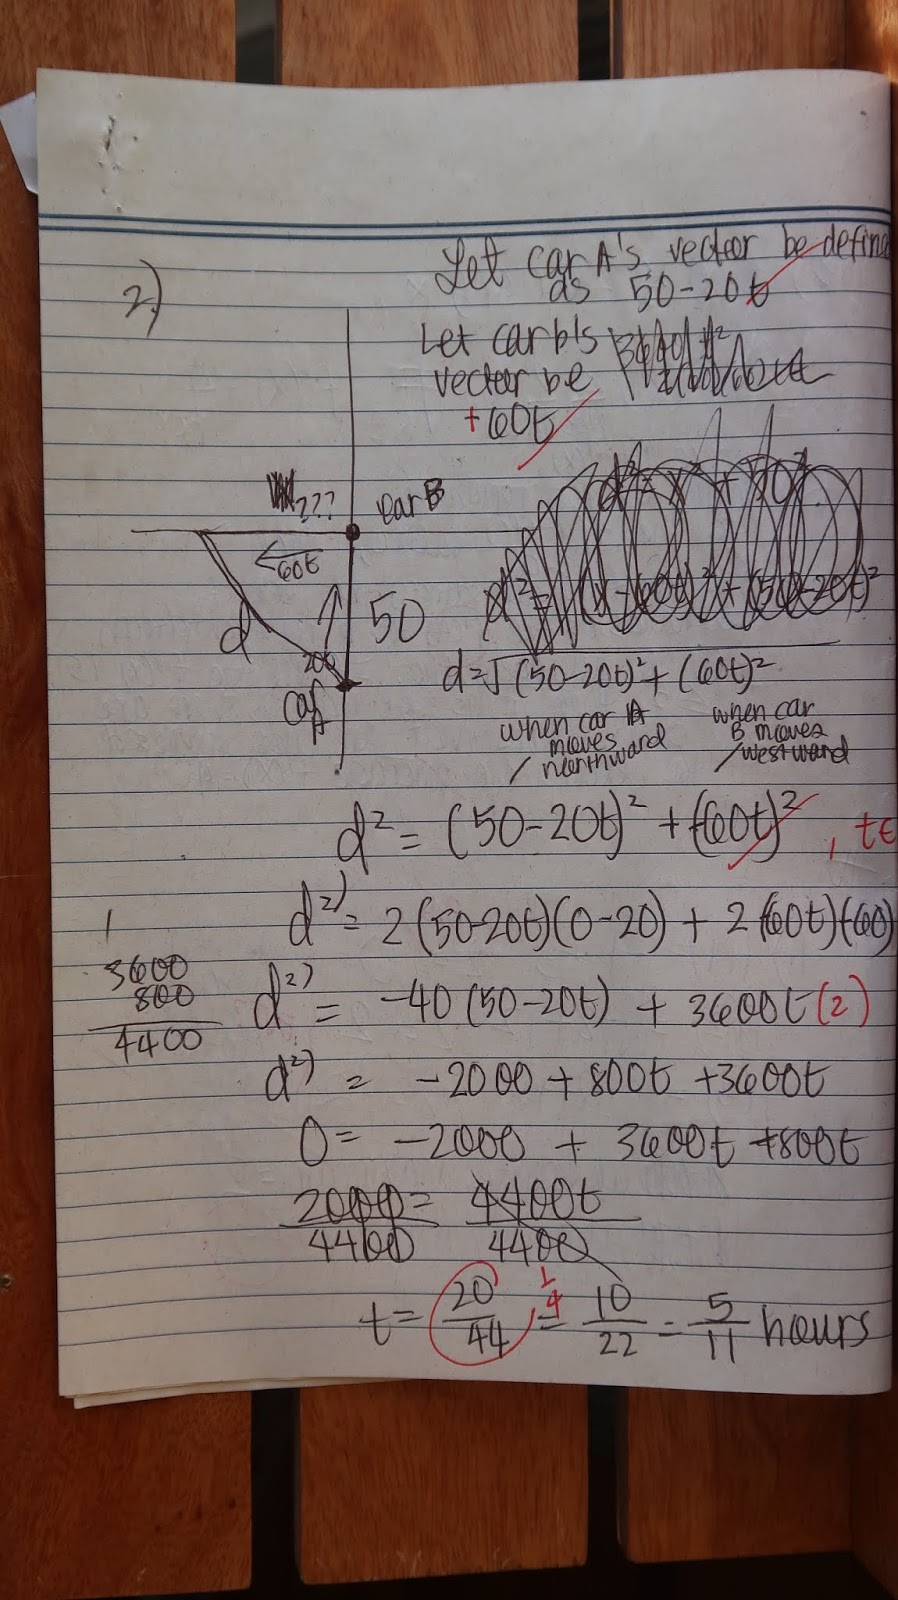 2)
Let car A's vector be define
as 50-20t
Let car b's
vector be
+60t
???
car B
60t
50
d
20t
car A
d=√(50-20t)²+(60t)²
when car A
moves
northward
when car
B moves
westward
d² = (50-20t)² + (-60t)² , t∈
d²) = 2(50-20t)(0-20) + 2(60t)(60)
d²) = -40(50-20t) + 3600t(2)
3600
800
4400
d²) = -2000 + 800t +3600t
0= -2000 + 3600t +800t
2000 = 4400t
4400 4400
t= 20/44 = 10/22 = 5/11 hours
1/4